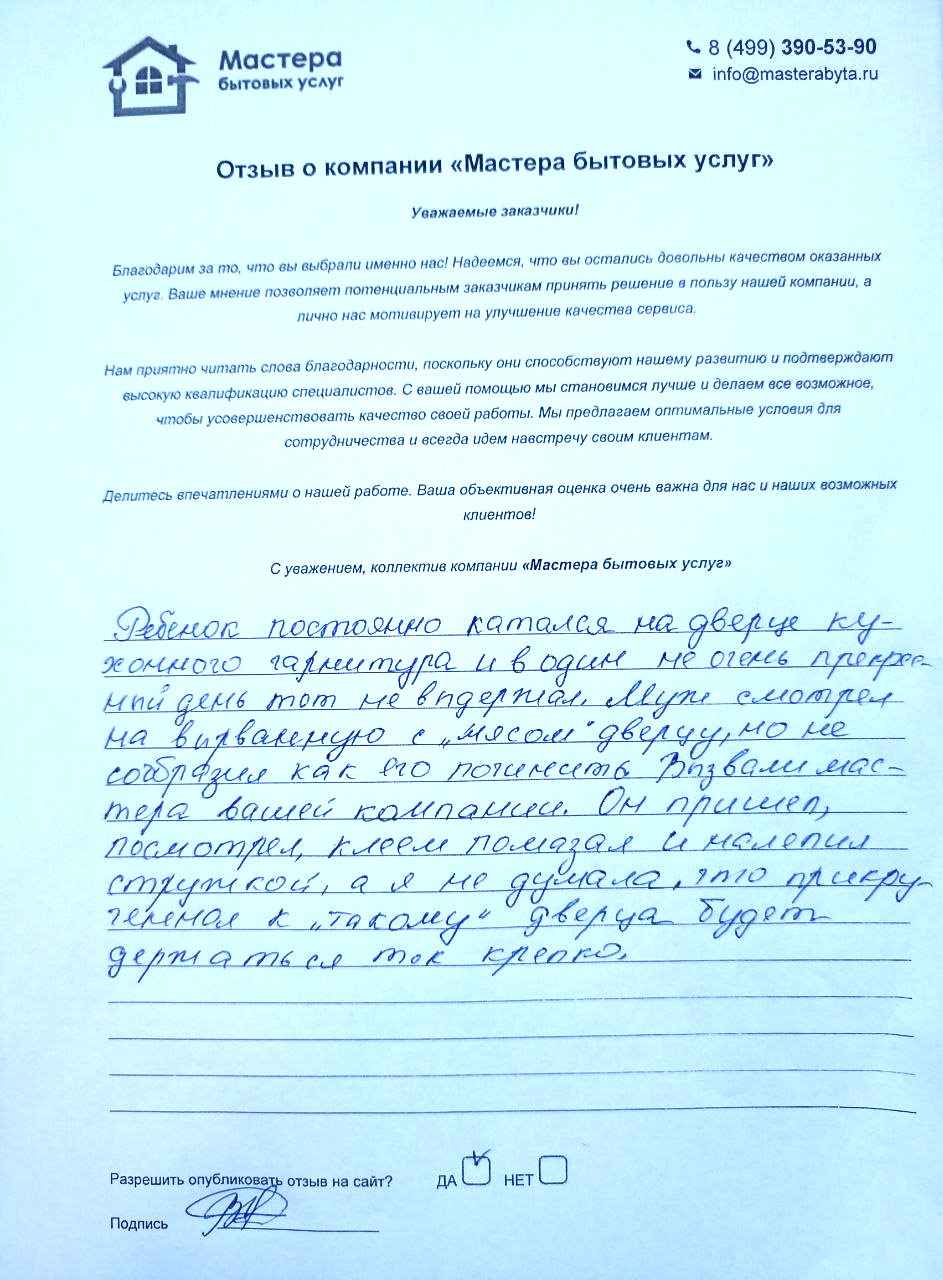 Мастера
бытовых услуг
8 (499) 390-53-90
info@masterabyta.ru
Отзыв о компании «Мастера бытовых услуг»
Уважаемые заказчики!
Благодарим за то, что вы выбрали именно нас! Надеемся, что вы остались довольны качеством оказанных
услуг. Ваше мнение позволяет потенциальным заказчикам принять решение в пользу нашей компании, а
лично нас мотивирует на улучшение качества сервиса.
Нам приятно читать слова благодарности, поскольку они способствуют нашему развитию и подтверждают
высокую квалификацию специалистов. С вашей помощью мы становимся лучше и делаем все возможное,
чтобы усовершенствовать качество своей работы. Мы предлагаем оптимальные условия для
сотрудничества и всегда идем навстречу своим клиентам.
Делитесь впечатлениями о нашей работе. Ваша объективная оценка очень важна для нас и наших возможных
клиентов!
С уважением, коллектив компании «Мастера бытовых услуг»
Ребенок постоянно катался на дверце ку-
хонного гарнитура и в один не очень прекрас-
ный день тот не выдержал. Муж смотрел
на вырванную с „мясом" дверцу, но не
сообразил как его починить. Вызвали мас-
тера вашей компании. Он пришел,
посмотрел, клеем помазал и налепил
стружкой, а я не думала, что прикру-
ченная к „такому" дверца будет
держаться так крепко.
Разрешить опубликовать отзыв на сайт? ДА НЕТ
Подпись